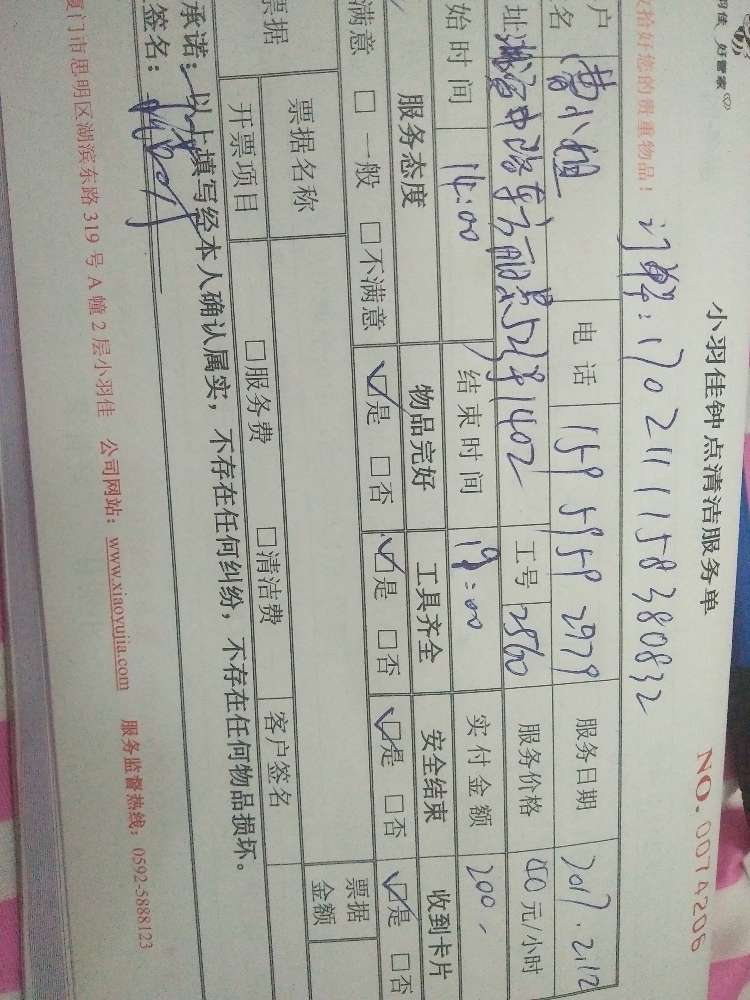 好管家
小羽佳钟点清洁服务单
NO.0074206
收拾好您的贵重物品!
订单:1702111158380832
户名 曹小姐 电话 159 5959 2979 服务日期 2017.2.12
址 湖滨中路 1402 工号 2560 服务价格 40元/小时
始时间 14:00 结束时间 19:00 实付金额 200
服务态度 物品完好 工具齐全 安全结束 收到卡片
满意 □一般 □不满意 ☑是 □否 ☑是 □否 ☑是 □否 ☑是 □否
票据 票据名称 票据金额
开票项目 □服务费 □清洁费 客户签名
承诺:以上填写经本人确认属实,不存在任何纠纷,不存在任何物品损坏。
签名:
厦门市思明区湖滨东路 319 号 A 幢 2 层小羽佳 公司网站:www.xiaoyujia.com 服务监督热线:0592-5888123